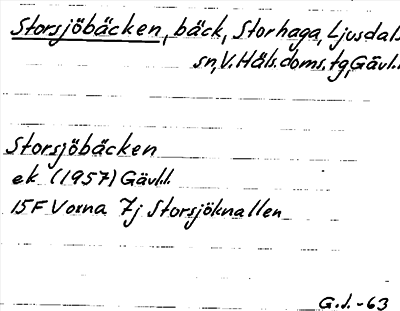 Storsjöbäcken, bäck, Storhaga, Ljusdals
sn, V. Häls. doms. tg, Gävl.l.
Storsjöbäcken
ek (1957) Gävl.l.
15F Voxna 7j Storsjöknallen
G.J. -63